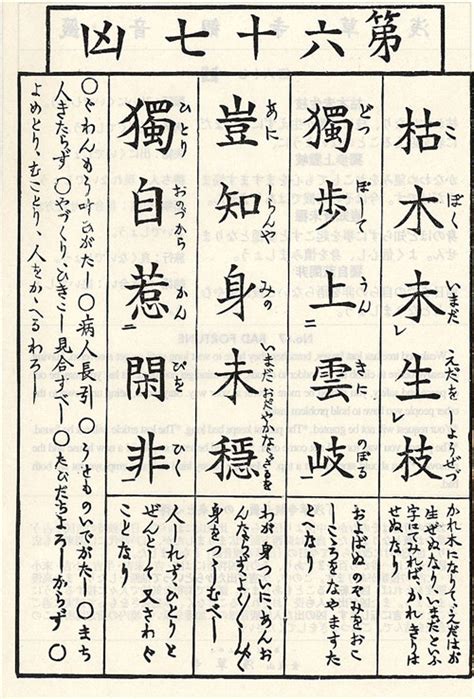 第六十七凶
枯木未生枝
こぼくいまだえだをしやうぜづ
かれ木になりて、えだはが
生ぜぬなり、いまだといふ
字にてみれば、かれきりは
せぬなり
獨歩上雲岐
どつぽてうんきにのぼる
およばぬのぞみをおこ
しこころをなやますた
となり
豈知身未穏
あにしらんやみのいまだおだやかならざるを
わが身ついに、あんお
んならざる
身をつゝしむべし
獨自惹閑非
ひとりおのづからかんぴをひく
人しれず、ひとりと
ぜんとして又さわぐ
ことなり
〇ぐわんもう叶ひがたし〇病人長引〇うせものいでがたし〇まち
人きたらず〇やづくり、ひきこし見合すべし〇たびだちよろしからず〇
よめとり、むことり、人をかゝへるわろし